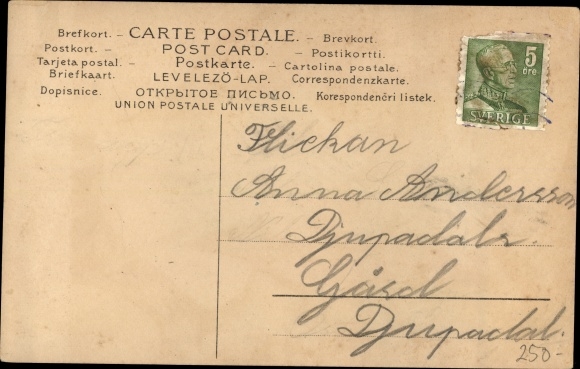 Brefkort. – CARTE POSTALE. – Brevkort.
Postkort. – POST CARD. – Postikortti.
Tarjeta postal. – Postkarte. – Cartolina postale.
Briefkaart. LEVELEZŐ-LAP. Correspondenzkarte.
Dopisnice. ОТКРЫТОЕ ПИСЬМО. Korespondenčri listek.
UNION POSTALE UNIVERSELLE.
5
öre
SVERIGE
Flickan
Anna Andersson
Djupadals.
Gård
Djupadal.
250-